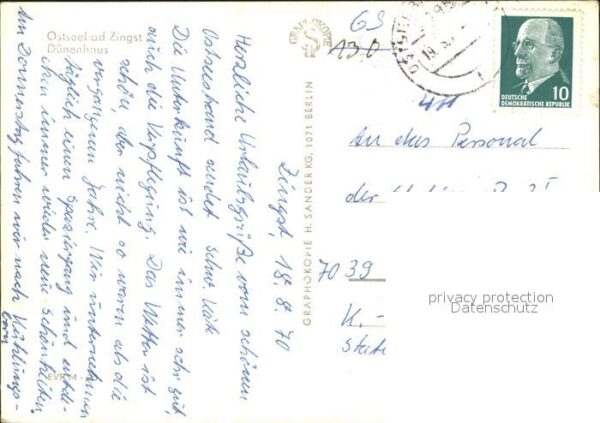 Ostseebad Zingst
Dünenhaus
Zingst, 18.8.70
Herzliche Urlaubsgrüße vom schönen
Ostseestrand sendet
Die Unterkunft ist wie immer sehr gut,
auch die Verpflegung. Das Wetter ist
schön, aber nicht so warm als die
vergangenen Jahre. Wir unternehmen
täglich einen Spaziergang und entdek-
ken immer wieder neue Schönheiten.
Am Donnerstag fahren wir nach Kühlungs-
born
GRAPHOKOPIE
GRAPHOKOPIE H. SANDER KG, 1071 BERLIN
130
DEUTSCHE
DEMOKRATISCHE REPUBLIK
10
An das Personal
der
7039
privacy protection
Datenschutz